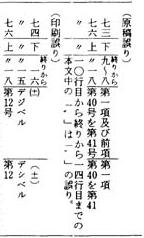 （原稿誤り）
七三下 九～八 第一項及び前項 第一項
七六上 終りから 一八 第40号を第41号 第40を第41
〃 〃 一〇行目から終りから一四行目までの
本文中の「，」は「・」の誤り。
（印刷誤り）
七四下 終りから 一六 ㈩ （土）
〃 〃 一五 デジベル デシベル
七六上 〃 一八 第12号 第12